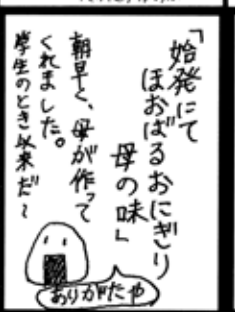 「始発にて
ほおばるおにぎり
母の味」
朝早く、母が作って
くれました。
学生のとき以来だ〜
ありがたや